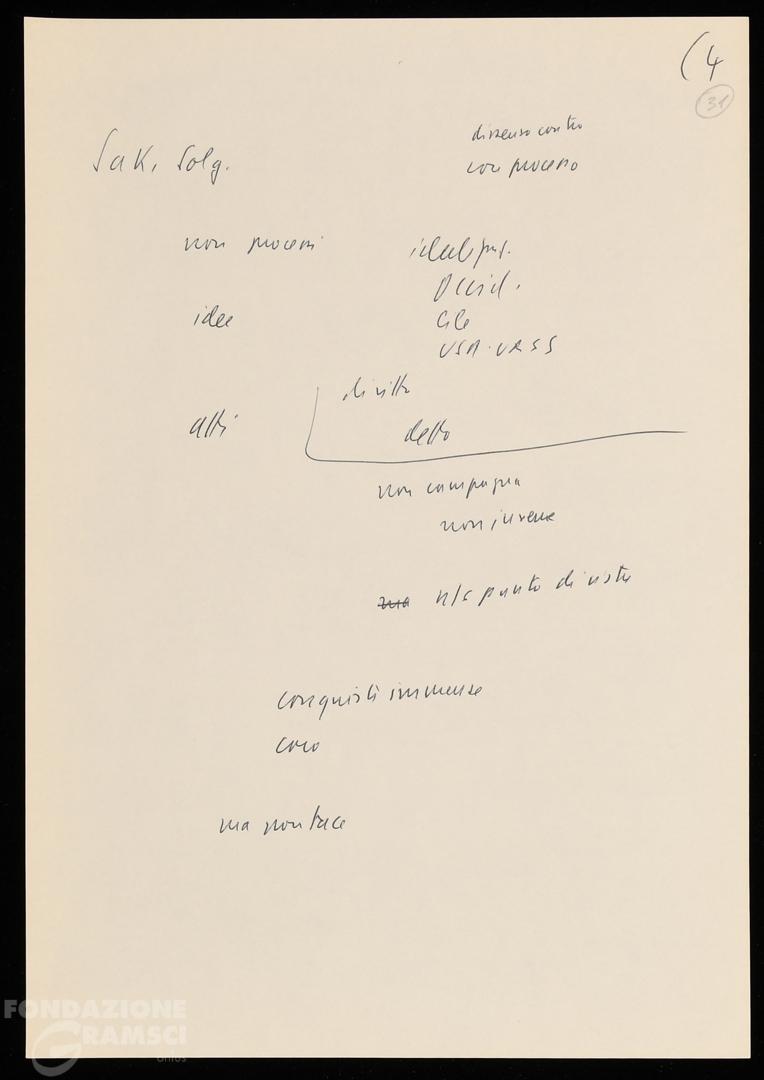 (4
31
dissenso contro
Sak. Solg.
con processo
non processi
idee
Occid.
Cile
USA-URSS
diritto
atti
detto
non campagna
non insieme
ma n/s punto di vista
conquiste immense
ma non tace
FONDAZIONE
GRAMSCI
onlus